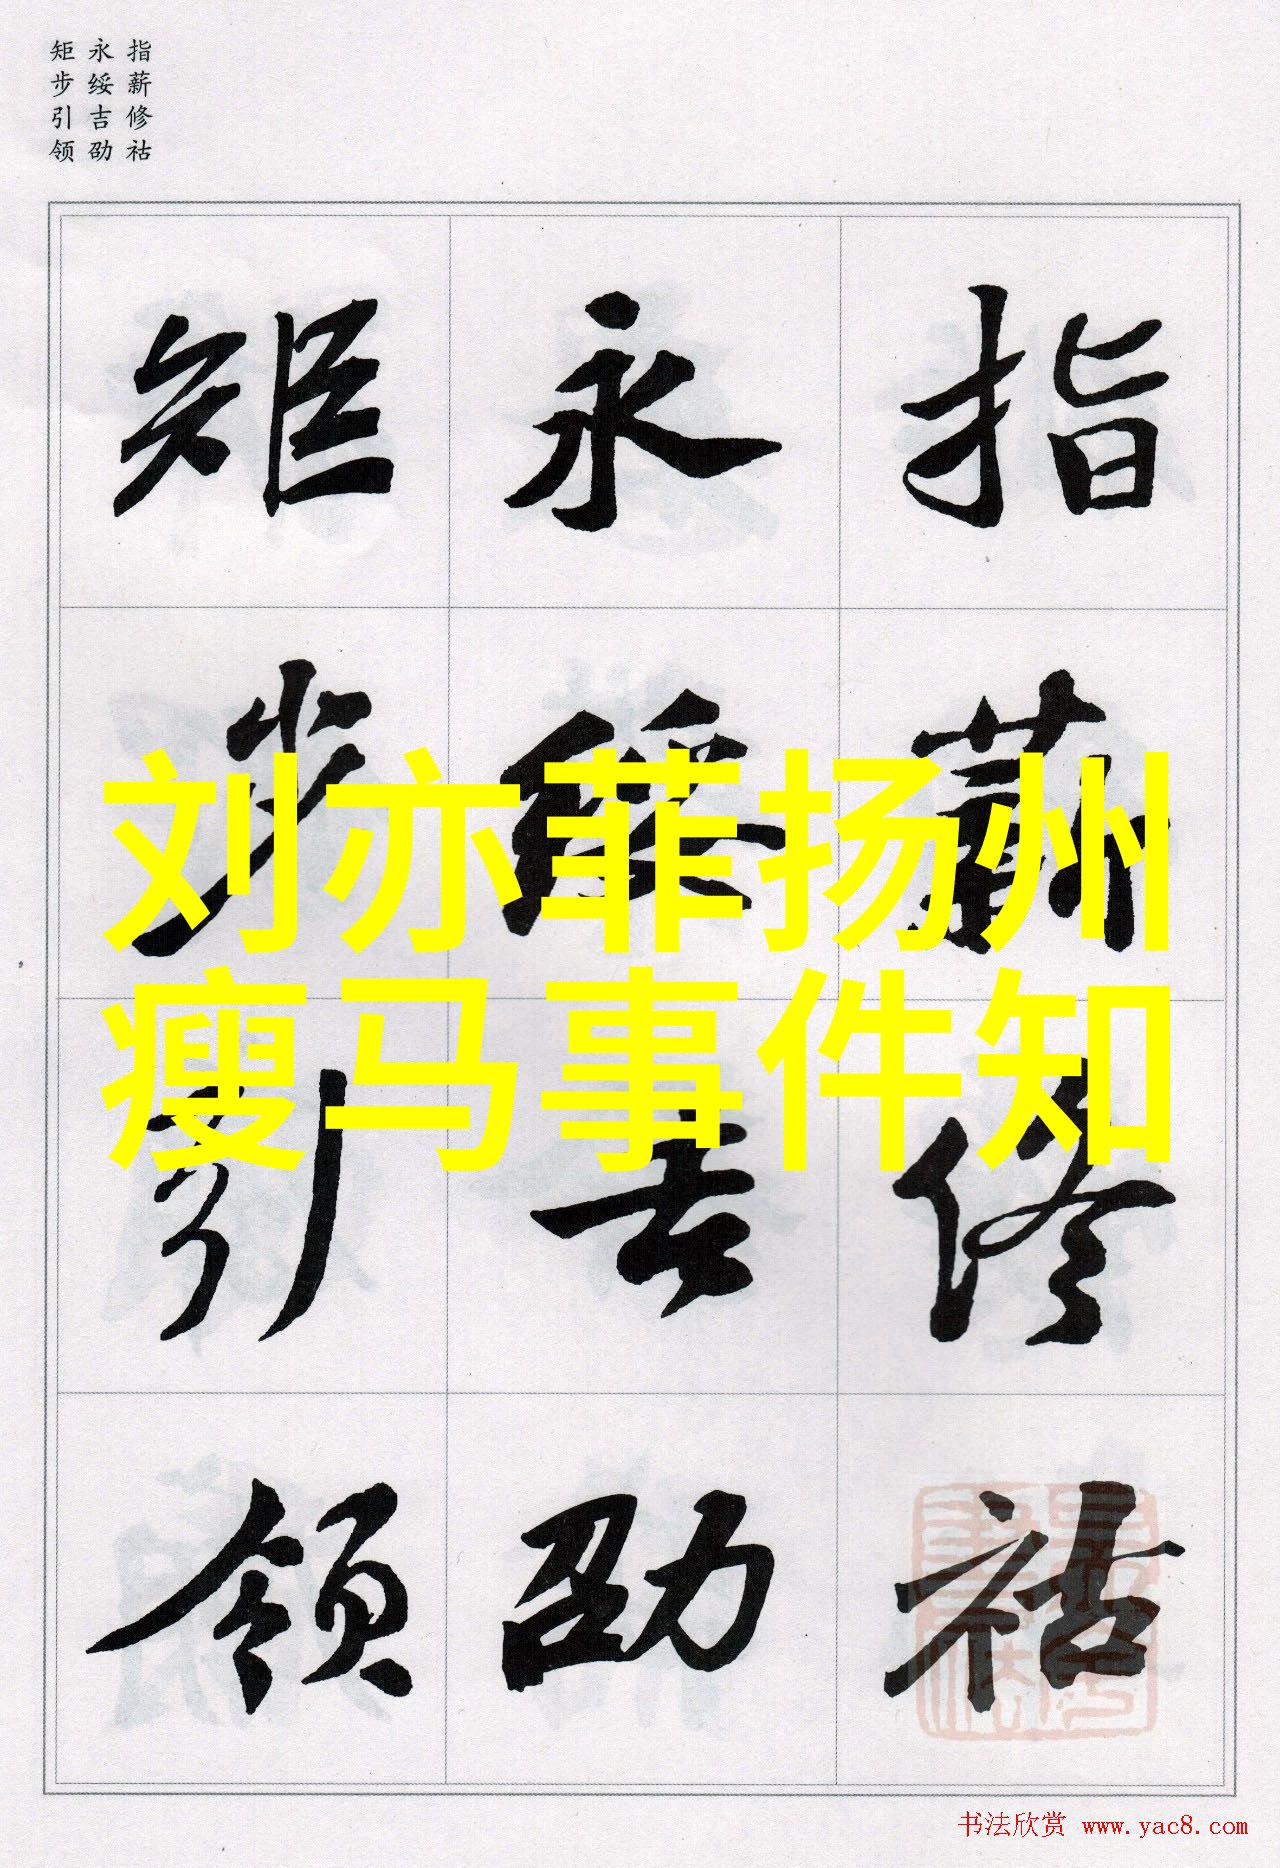 指薪修祜
永绥吉劭
矩步引领
指薪修祜
永绥吉劭
矩步引领
刘亦菲扬州
瘦马事件知
书法欣赏 www.yac8.com